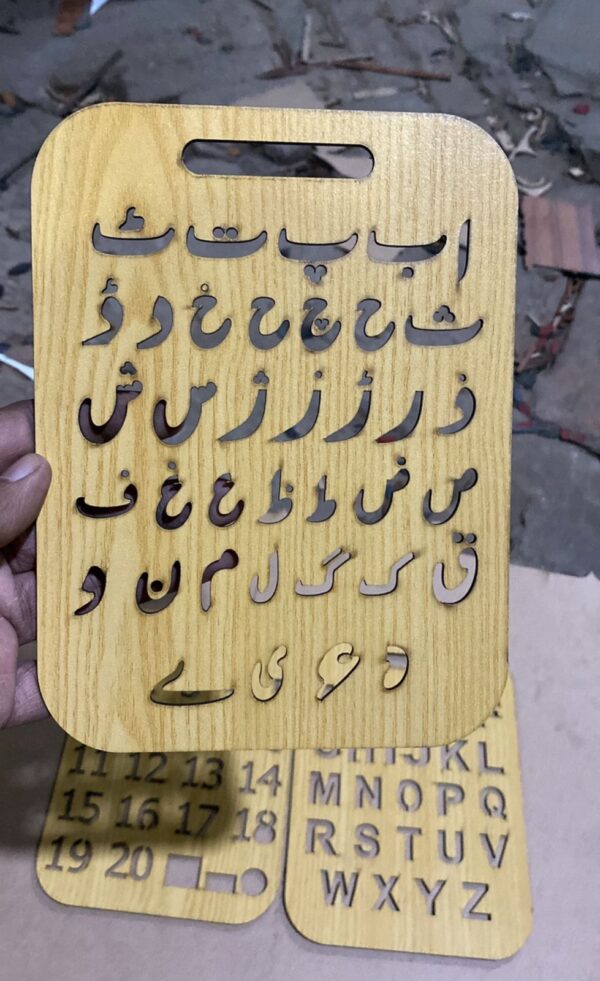 ا ب پ ت ٹ
ث ح چ ح خ د ڈ
ذ ر ڑ ز ژ س ش
ص ض ط ظ ع غ ف
ق ک گ ل م ن و
ہ ء ی ے
11 12 13 14
15 16 17 18
19 20
J K L
M N O P Q
R S T U V
W X Y Z